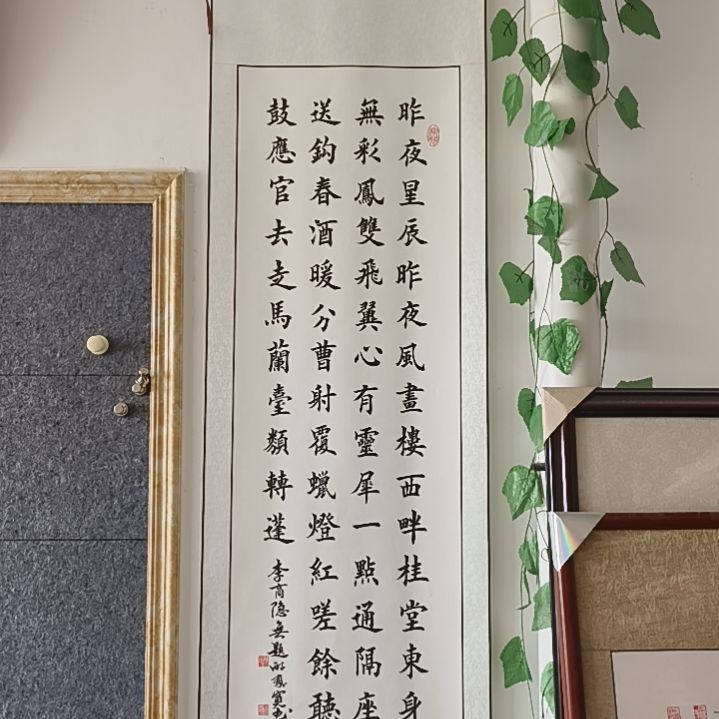 昨夜星辰昨夜風畫樓西畔桂堂東身
無彩鳳雙飛翼心有靈犀一點通隔座
送鈎春酒暖分曹射覆蠟燈紅嗟餘聽
鼓應官去走馬蘭臺類轉蓬
李商隐無題